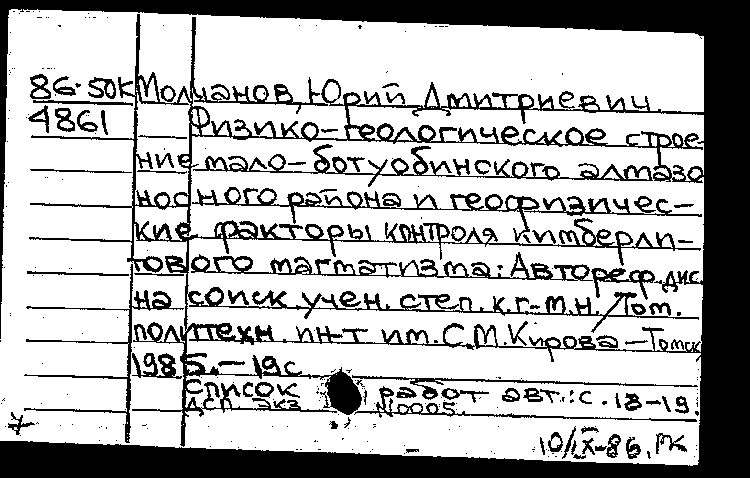 86-50К Молчанов, Юрий Дмитриевич.
4861 Физико-геологическое строе
ние мало-ботуобинского алмазо
носного района и геофизичес-
кие факторы контроля кимберли-
тового магматизма: Автореф. дис.
на соиск. учен. степ. к.г.-м.н. / Том.
политехн. ин-т им. С.М. Кирова — Томск,
1985. — 19с
Список работ авт.: с. 18-19.
ДСП. экз №0005.
10/IX-86. РК